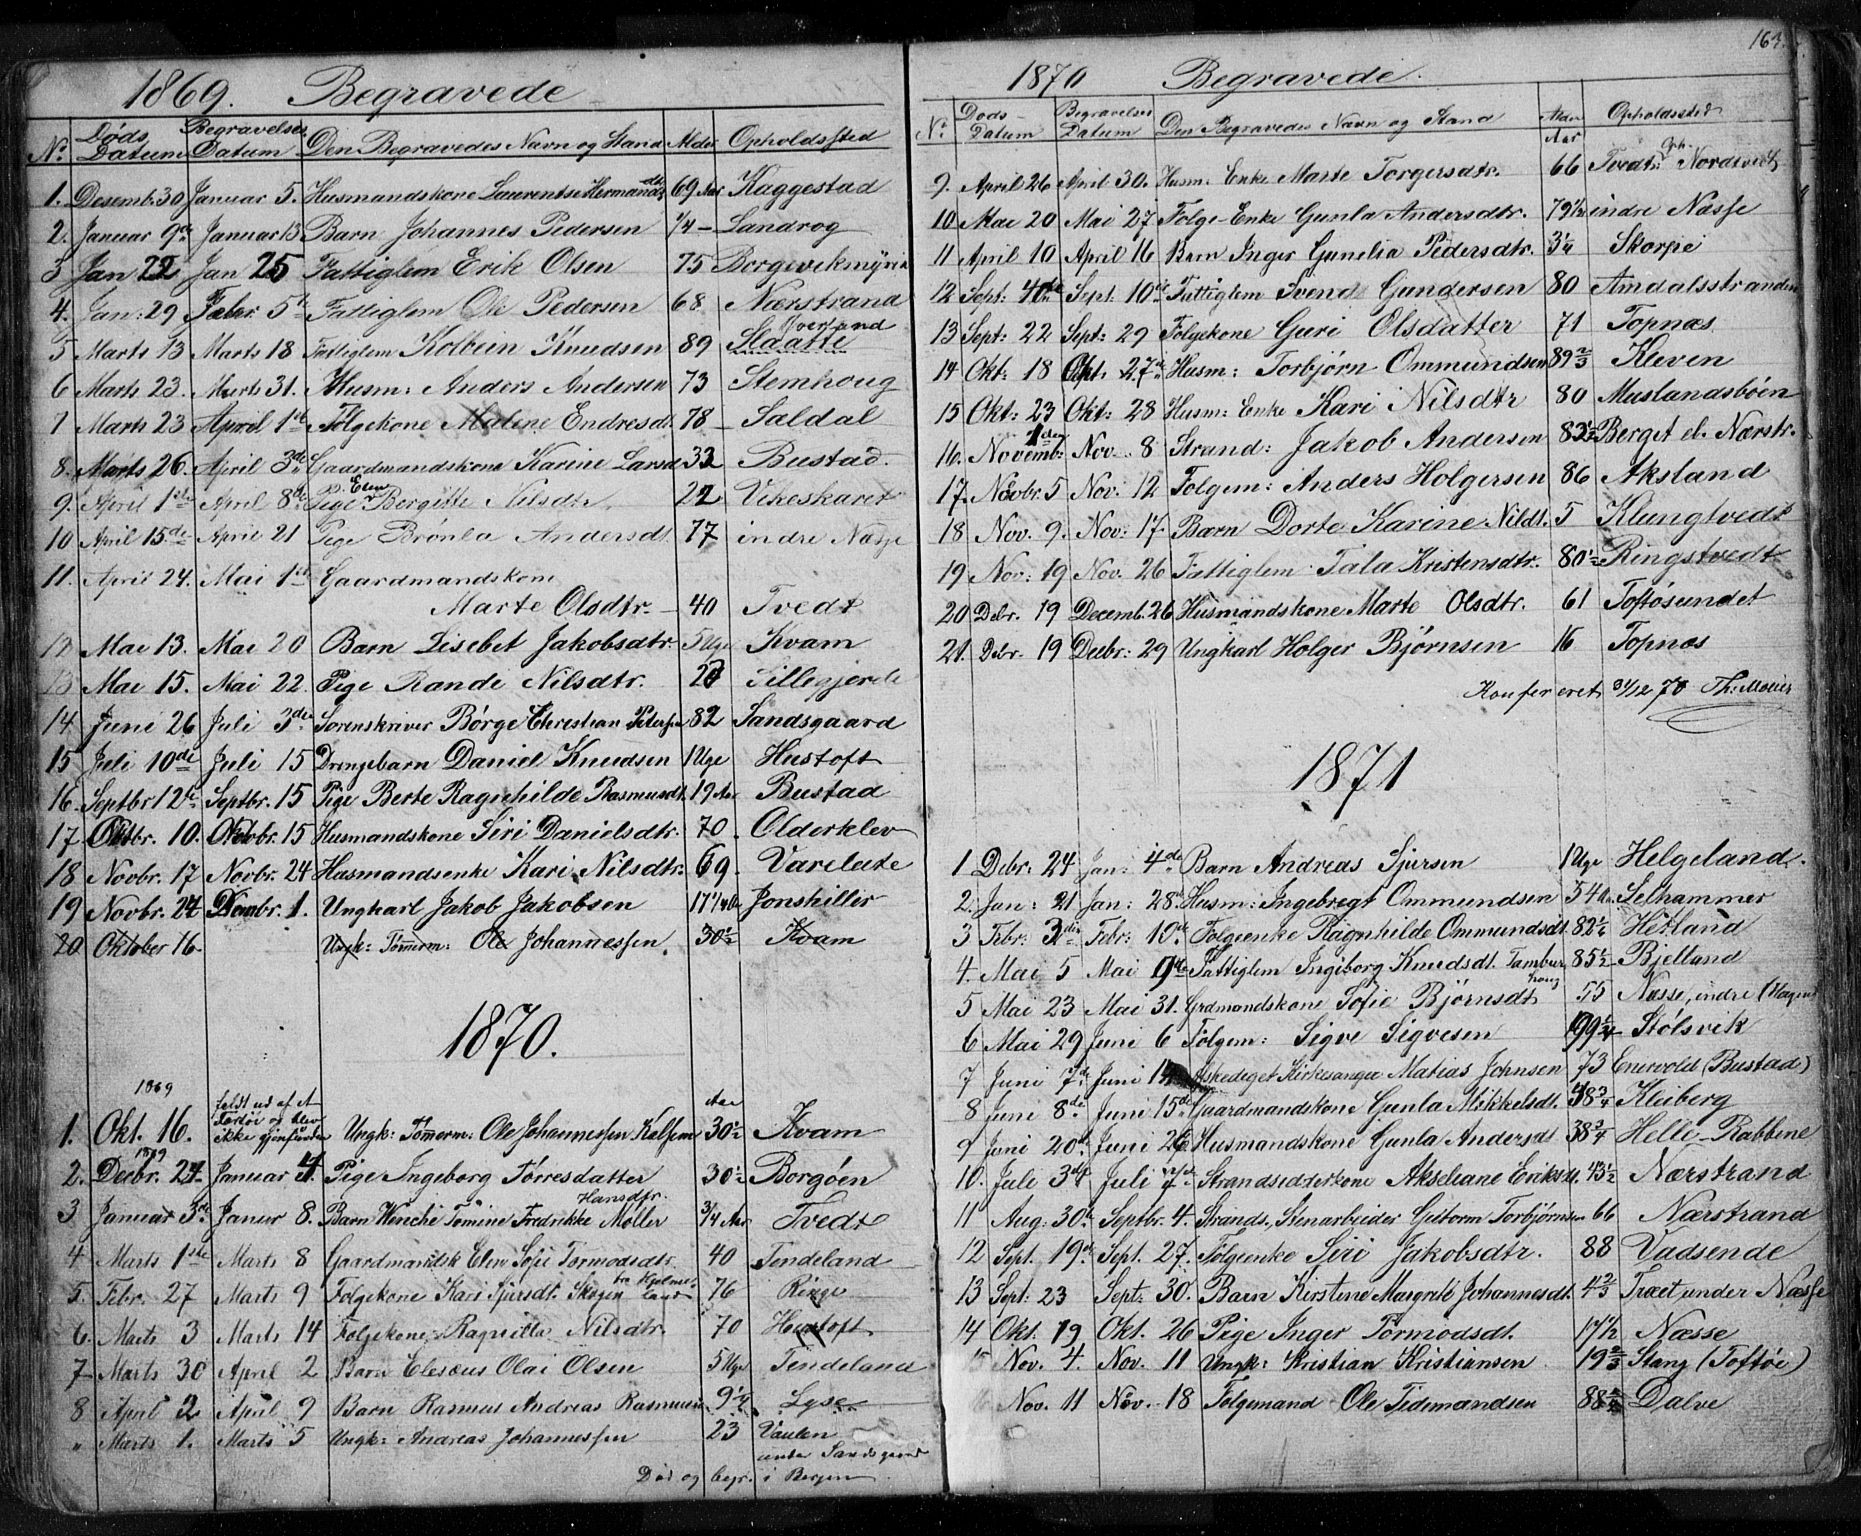 1869. Begravede
No. Døds Datum Begravelses Datum Den Begravedes Navn og Stand Alder Opholdssted
1. Desemb. 30 Januar 5. Husmandskone Laurentse Hermandsdtr 69 Aar Kaggestad
2. Januar 9de Januar 13 Barn Johannes Pedersen 1/4 – Sandrog
3 Jan 22 Jan 25 Fattiglem Erik Olsen 75 Borgevikmyren
4. Jan: 29 Febr. 5te Fattiglem Ole Pedersen 68 Nærstrand
5 Marts 13 Marts 18 Fattiglem Kolbein Knudsen 89 Slaatte
6 Marts 23. Marts 31. Husm: Anders Andersen 73 Stemhoug
7 Marts 23 April 1ste Følgekone Malene Endresdt 78 – Saldal
8. Marts 26. April 3de Gaardmandskone Karine Larsd 33 Bustad.
9. April 1ste April 8de Pige Elen Bergitte Nilsdtr. 22 Vikeskaret
10 April 15de April 21 Pige Brønla Andersdt 77 indre Næsse
11. April 24. Mai 1ste Gaardmandskone
Marte Olsdtr. – 40 Tvedt
12 Mai 13. Mai 20 Barn Lisebet Jakobsdtr. 5 Uge Kvam
13 Mai 15. Mai 22. Pige Rande Nilsdtr. 27 Sillegjerde
14 Juni 26 Juli 3die Sorenskriver Børge Christian Petersen 82 Sandsgaard
15 Juli 10de Juli 15 Drengebarn Daniel Knudsen 1 Uge Hustoft
16. Septbr 12te Septbr. 15 Pige Berte Ragnhilde Rasmusdt. 19 Aar Bustad
17 Oktbr. 10. Oktobr. 15 Husmandskone Siri Danielsdtr. 70. Olderklev
18 Novbr. 17 Novbr. 24 Husmandsenke Kari Nilsdtr. 69. Varelate
19 Novbr. 24 Dcembr. 1. Ungkarl Jakob Jakobsen 17 1/4 Jonshiller
20 Oktober 16. Ungk: Tømerm: Ole Johannessen. 30 1/2 Kvam
1870.
1869
1. Okt. 16. faldt ud af et Fartøi og blev ikke gjenfunden Ungk: Tømerm: Ole Johannessen Kalsem Aar 30 1/2 Kvam
1869
2. Decbr. 24 Januar 4. Pige Ingeborg Torresdatter 30 1/2 Borgøen
3 Januar 3de Januar 8. Barn Wenche Tomine Fredrikke Hansdtr. Møller 3/4 Aar Tvedt
4 Marts 1ste Marts 8 Gaardmandsk Elen Sofi Tormodsdtr. 40 Tendeland
5. Febr. 27 Marts 9 Følgekone Kari Sjursdt. Skogen fra Hjelmeland 76 Ringe
6. Marts 3 Marts 14 Følgekone Ragnilla Nilsdtr. 70 Hustoft
7 Marts 30 April 2 Barn Eleseus Olai Olsen 5 Uge Tendeland
8 April 2 April 9 Barn Rasmus Andreas Rasmusen 9 1/4 Lyse
„ Marts 1. Marts 5 Ungk: Andreas Johannessen 23 Vaulen
under Sandsgaard
Død og begr. i Bergen
1870 Begravede.
No. Døds-Datum Begravelses Datum Den Begravedes Navn og Stand Alder Aar Opholdssted
9. April 26 April 30. Husm: Enke Marte Torgersdtr. 66 Tvedt: Nordvedt
10 Mai 20 Mai 27 Følge-Enke Gunla Andersdtr. 79 1/2 indre Næsse
11 April 10 April 16 Barn Inger Gunelia Pedersdtr. 3 1/4 Skorpe
12 Sept: 4de Sept. 10de Fattiglem Svend Gundersen 80 Amdalsstranden
13 Sept: 22 Sept: 29 Følgekone Guri Olsdatter 71 Topnæs
14 Okt: 18 Okt. 27de Husm: Torbjørn Ommundsen 89 2/3 Kleven
15 Okt: 23 Okt: 28 Husm: Enke Kari Nilsdtr 80 Muslandsbøen
16. Novemb: 1den Nov. 8 Strand: Jakob Andersen 83 1/2 Berget el. Nærstr.
17. Novbr. 5 Nov: 12 Følgem: Anders Holgersen 86 Aksland
18 Nov. 9. Nov: 17. Barn Dorte Karine Nilsdt. 5 Klungtvedt
19 Nov: 19 Nov. 26 Fattiglem Tala Kristensdtr. 80 1/2 Ringstvedt
20 Debr. 19 Decemb. 26 Husmandskone Marte Olsdtr. 61 Toftøsundet
21. Debr. 19 Decbr: 29 Ungkarl Holger Bjørnsen 16 Topnæs
Konfereret 31/12 70 Th: Møller
1871
1 Debr: 24 Jan: 4de Barn Andreas Sjursen 1 Uge Helgeland.
2. Jan: 21 Jan: 28de Husm: Ingebregt Ommundsen 54 Aar Selhammer
3 Febr: 3die Febr: 10de Følgeenke Ragnhilde Ommundsdt. 82 1/2 Hetland
4. Mai 5 Mai 9de Fattiglem Ingiborg Knudsdt. Tamburhaug 85 1/2 Bjelland
5 Mai 23 Mai 31. Grdmandskone Tofie Bjørnsdt 55 Næsse, indre (Hagen)
6 Mai 29 Juni 6 Følgem: Sigve Sigvesen 99 1/4 Stølsvik
7 Juni 7de Juni Afskediget Kirkesanger Matias Johnsen 73 Enevold (Bustad)
8 Juni 8de Juni 15de Gaardmandskone Gunla Mikkelsdt. 48 3/4 Kleiberg
9 Juni 20de Juni 26 Husmandskone Gunla Andersdt 38 3/4 Helle-Rabbene
10. Juli 3die Juli 7de Strandsidderkone Akseliane Eriksdt. 43 1/2 Nærstrand
11 Aug: 30te Septbr. 4. Strands. Stenarbeider Guttorm Torbjørnsen 66 Nærstrand
12 Sept. 19de Sept. 27. Følgeenke Siri Jakobsdtr. 88 Vadsende
13 Sept: 23 Sept: 30. Barn Kirstine Margrete Johannesdt. 4 2/3 Træet under Næsse
14 Okt. 19 Okt. 26 Pige Inger Tormodsdt. 17 1/2 Næsse
15 Nov. 4. Nov. 11 Ungk: Kristian Kristiansen 19 2/3 Stang (Toftøi)
Nov. 11 Nov. 18 Følgemand Ole Tidemandsen 88 Dalve